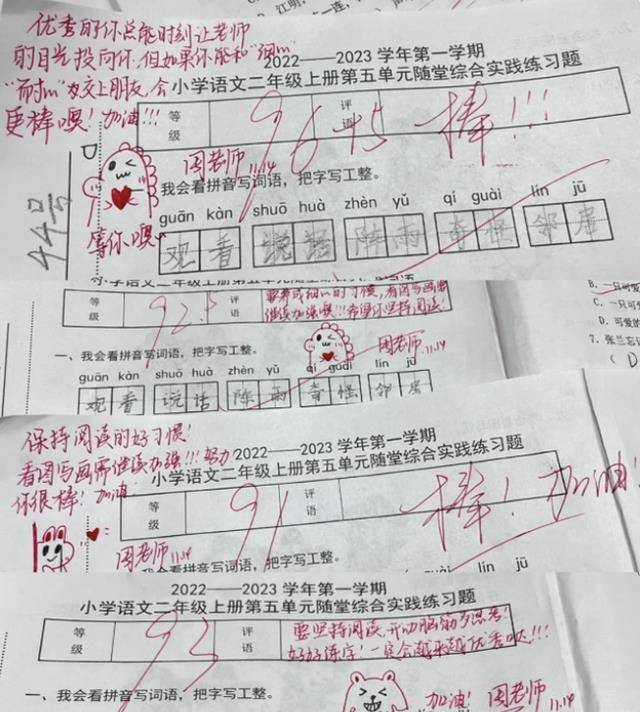 优秀的你总能时刻让老师
的目光投向你,但如果你能和“细心”
“耐心”交上朋友,会
更棒噢!加油!!!
2022——2023学年第一学期
小学语文二年级上册第五单元随堂综合实践练习题
等级
96.5
评语
棒!!!
周老师
11.14
44号
等你噢~
我会看拼音写词语,把字写工整。
guān kàn shuō huà zhèn yǔ qí guài lín jū
观看 说话 阵雨 奇怪 邻居
等级
92.5
评语
要养成细心的习惯,看图写画需
继续加强噢!!!希望你坚持阅读!
周老师
11.14
一、我会看拼音写词语,把字写工整。
guān kàn shuō huà zhèn yǔ qí guài lín jū
观看 说话 阵雨 奇怪 邻居
B.一只可爱
C.一只可
D.可爱的
7.张兰忘
(D
保持阅读的好习惯!
看图写画需继续加强!!!努力
你很棒!加油
2022——2023学年第一学期
小学语文二年级上册第五单元随堂综合实践练习题
等级
91
评语
棒!加油!
周老师
11.14
我会看拼音写词语,把字写工整。
lín jū
2022——2023学年第一学期
小学语文二年级上册第五单元随堂综合实践练习题
等级
93
评语
要坚持阅读,开动脑筋多思考!
好好练字!一定会越来越优秀哒!!!
一、我会看拼音写词语,把字写工整。
加油!周老师
11.14